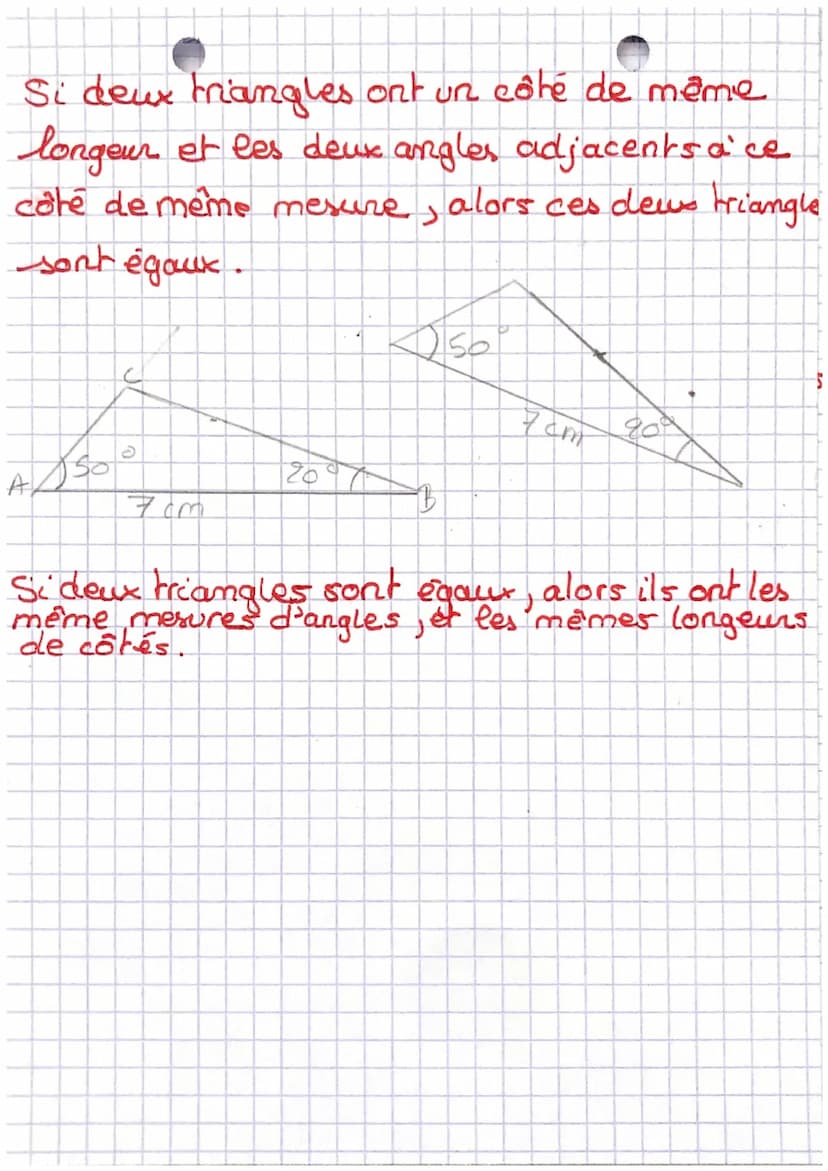 Si deux triangles ont un côté de même
longeur et les deux angles adjacents à ce
côté de même mesure, alors ces deux triangle
sont égaux.
50°
7 cm
20°
C
A
50°
20°
B
7 cm
Si deux triangles sont égaux, alors ils ont les
même mesures d'angles, et les mêmes longeurs
de côtés.